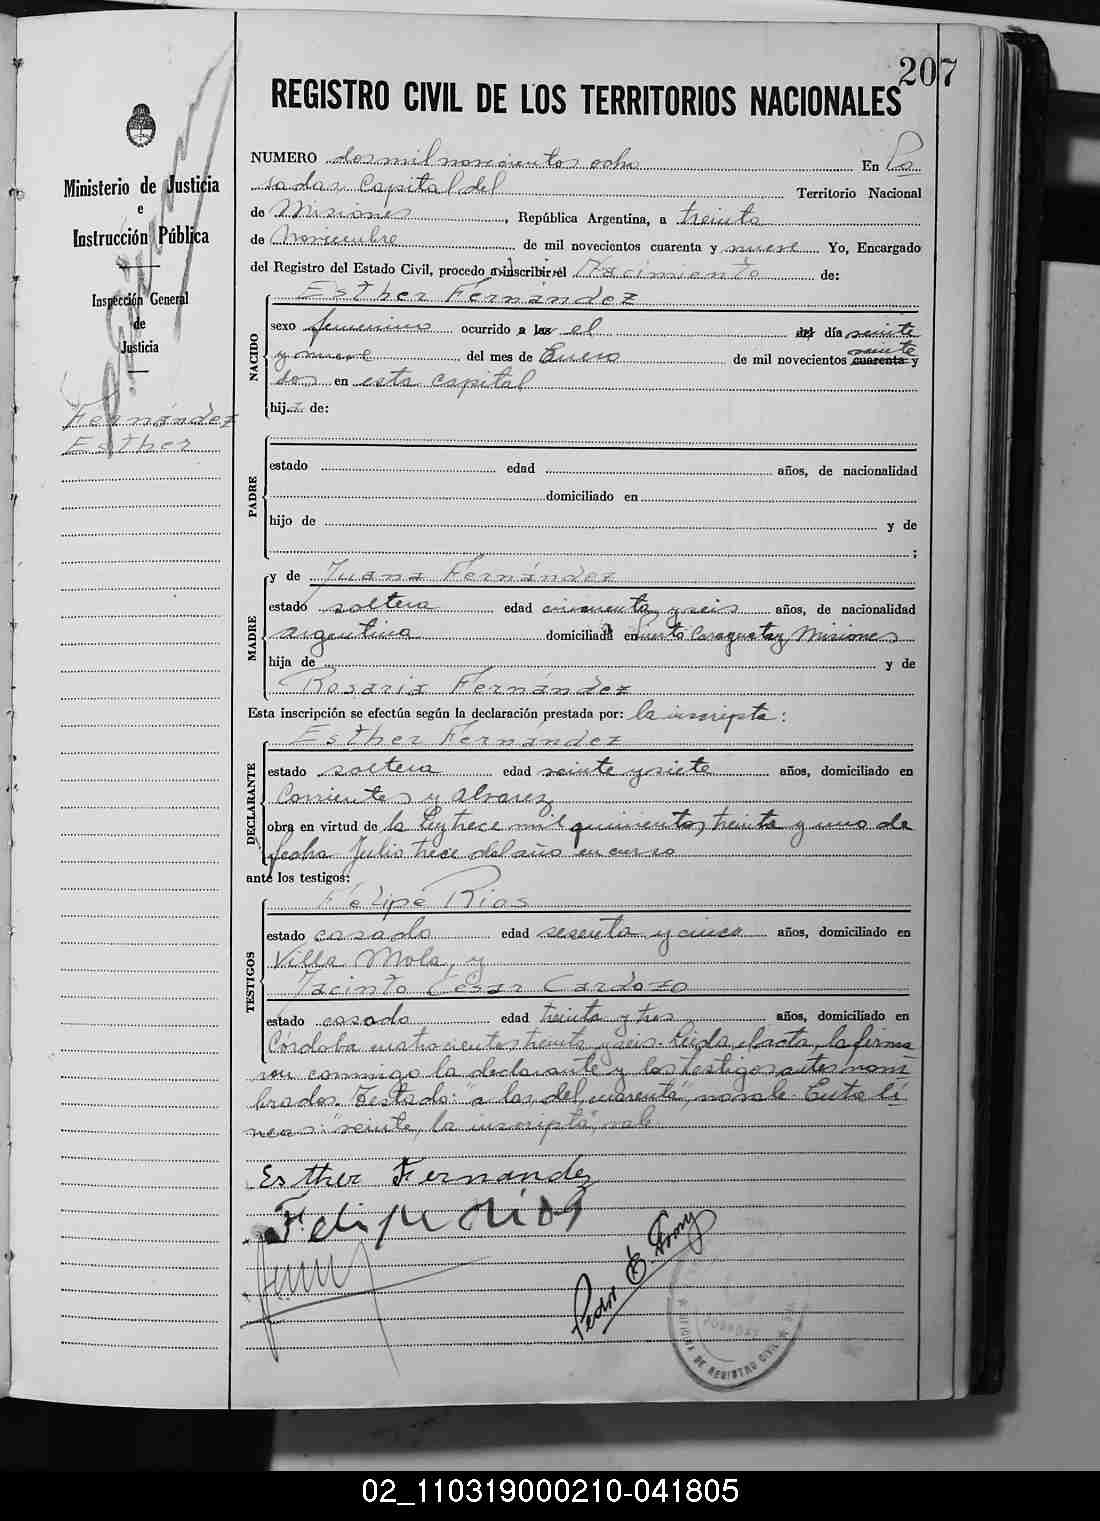 207
REGISTRO CIVIL DE LOS TERRITORIOS NACIONALES
Ministerio de Justicia
e
Instrucción Pública
Inspección General
de
Justicia
Fernández
Esther
NUMERO dos mil novecientos ocho En Po
sadas Capital del Territorio Nacional
de Misiones, República Argentina, a treinta
de Noviembre de mil novecientos cuarenta y nueve Yo, Encargado
del Registro del Estado Civil, procedo a inscribir el Nacimiento de:
NACIDO
Esther Fernández
sexo femenino ocurrido a las el del día veinte
y nueve del mes de Enero de mil novecientos cuarenta veinte y
dos en esta capital
hija de:
PADRE
estado edad años, de nacionalidad
domiciliado en
hijo de y de
;
MADRE
y de Juana Fernández
estado soltera edad cincuenta y seis años, de nacionalidad
argentina domiciliada en Puerto Caraguatay, Misiones
hija de y de
Rosaria Fernández
Esta inscripción se efectúa según la declaración prestada por: la inscripta:
DECLARANTE
Esther Fernández
estado soltera edad veinte y siete años, domiciliado en
Corrientes y Alvarez
obra en virtud de la Ley trece mil quinientos treinta y uno de
fecha Julio trece del año en curso
ante los testigos:
TESTIGOS
Felipe Rios
estado casado edad sesenta y cinco años, domiciliado en
Villa Mola, y
Jacinto César Cardozo
estado casado edad treinta y tres años, domiciliado en
Córdoba cuatrocientos treinta y seis. Leida el acta, la firma
ron conmigo la declarante y los testigos antes nom
brados. Testado: "a las, del, cuarenta", no vale. Entre lí
neas: "veinte, la inscripta", vale
Esther Fernandez
Felipe Rios
Pedro E.
POSADAS
DE REGISTRO CIVIL
02_110319000210-041805